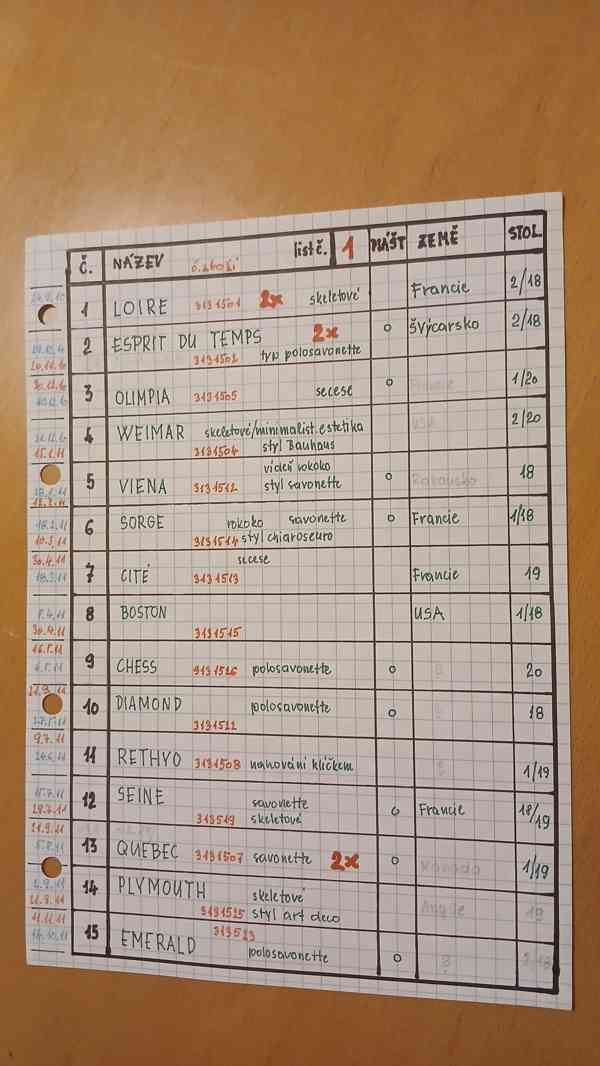 Č. NÁZEV č.zboží list č. 1 PLÁŠŤ ZEMĚ STOL.
1 LOIRE 3131501 2x skeletové Francie 2/18
2 ESPRIT DU TEMPS 2x o Švýcarsko 2/18
20.12.10 3131502 typ polosavonette
30.12.10 3 OLIMPIA 3131505 secese o 1/20
4 WEIMAR skeletové/minimalist.estetika USA 2/20
15.1.11 3131504 styl Bauhaus
vídeň rokoko
5 VIENA 3131512 styl savonette o Rakousko 18
12.2.11
6 SORGE rokoko savonette o Francie 1/18
10.3.11 3131514 styl chiaroscuro
30.4.11 secese
18.3.11 7 CITÉ 3131513 Francie 19
8.4.11 8 BOSTON USA 1/18
30.4.11 3131515
16.5.11
6.5.11 9 CHESS 3131526 polosavonette o 20
21.9.11 10 DIAMOND polosavonette o 18
3131522
9.7.11
24.6.11 11 RETHYO 3131508 natahování klíčkem 1/19
15.7.11 12 SEINE savonette o Francie 18/19
29.7.11 313519 skeletové
21.9.11
5.8.11 13 QUEBEC 3131507 savonette 2x o Kanada 1/19
2.9.11 14 PLYMOUTH skeletové Anglie 19
21.9.11 3131525 styl art deco
11.11.11 313523
14.10.11 15 EMERALD polosavonette o ?